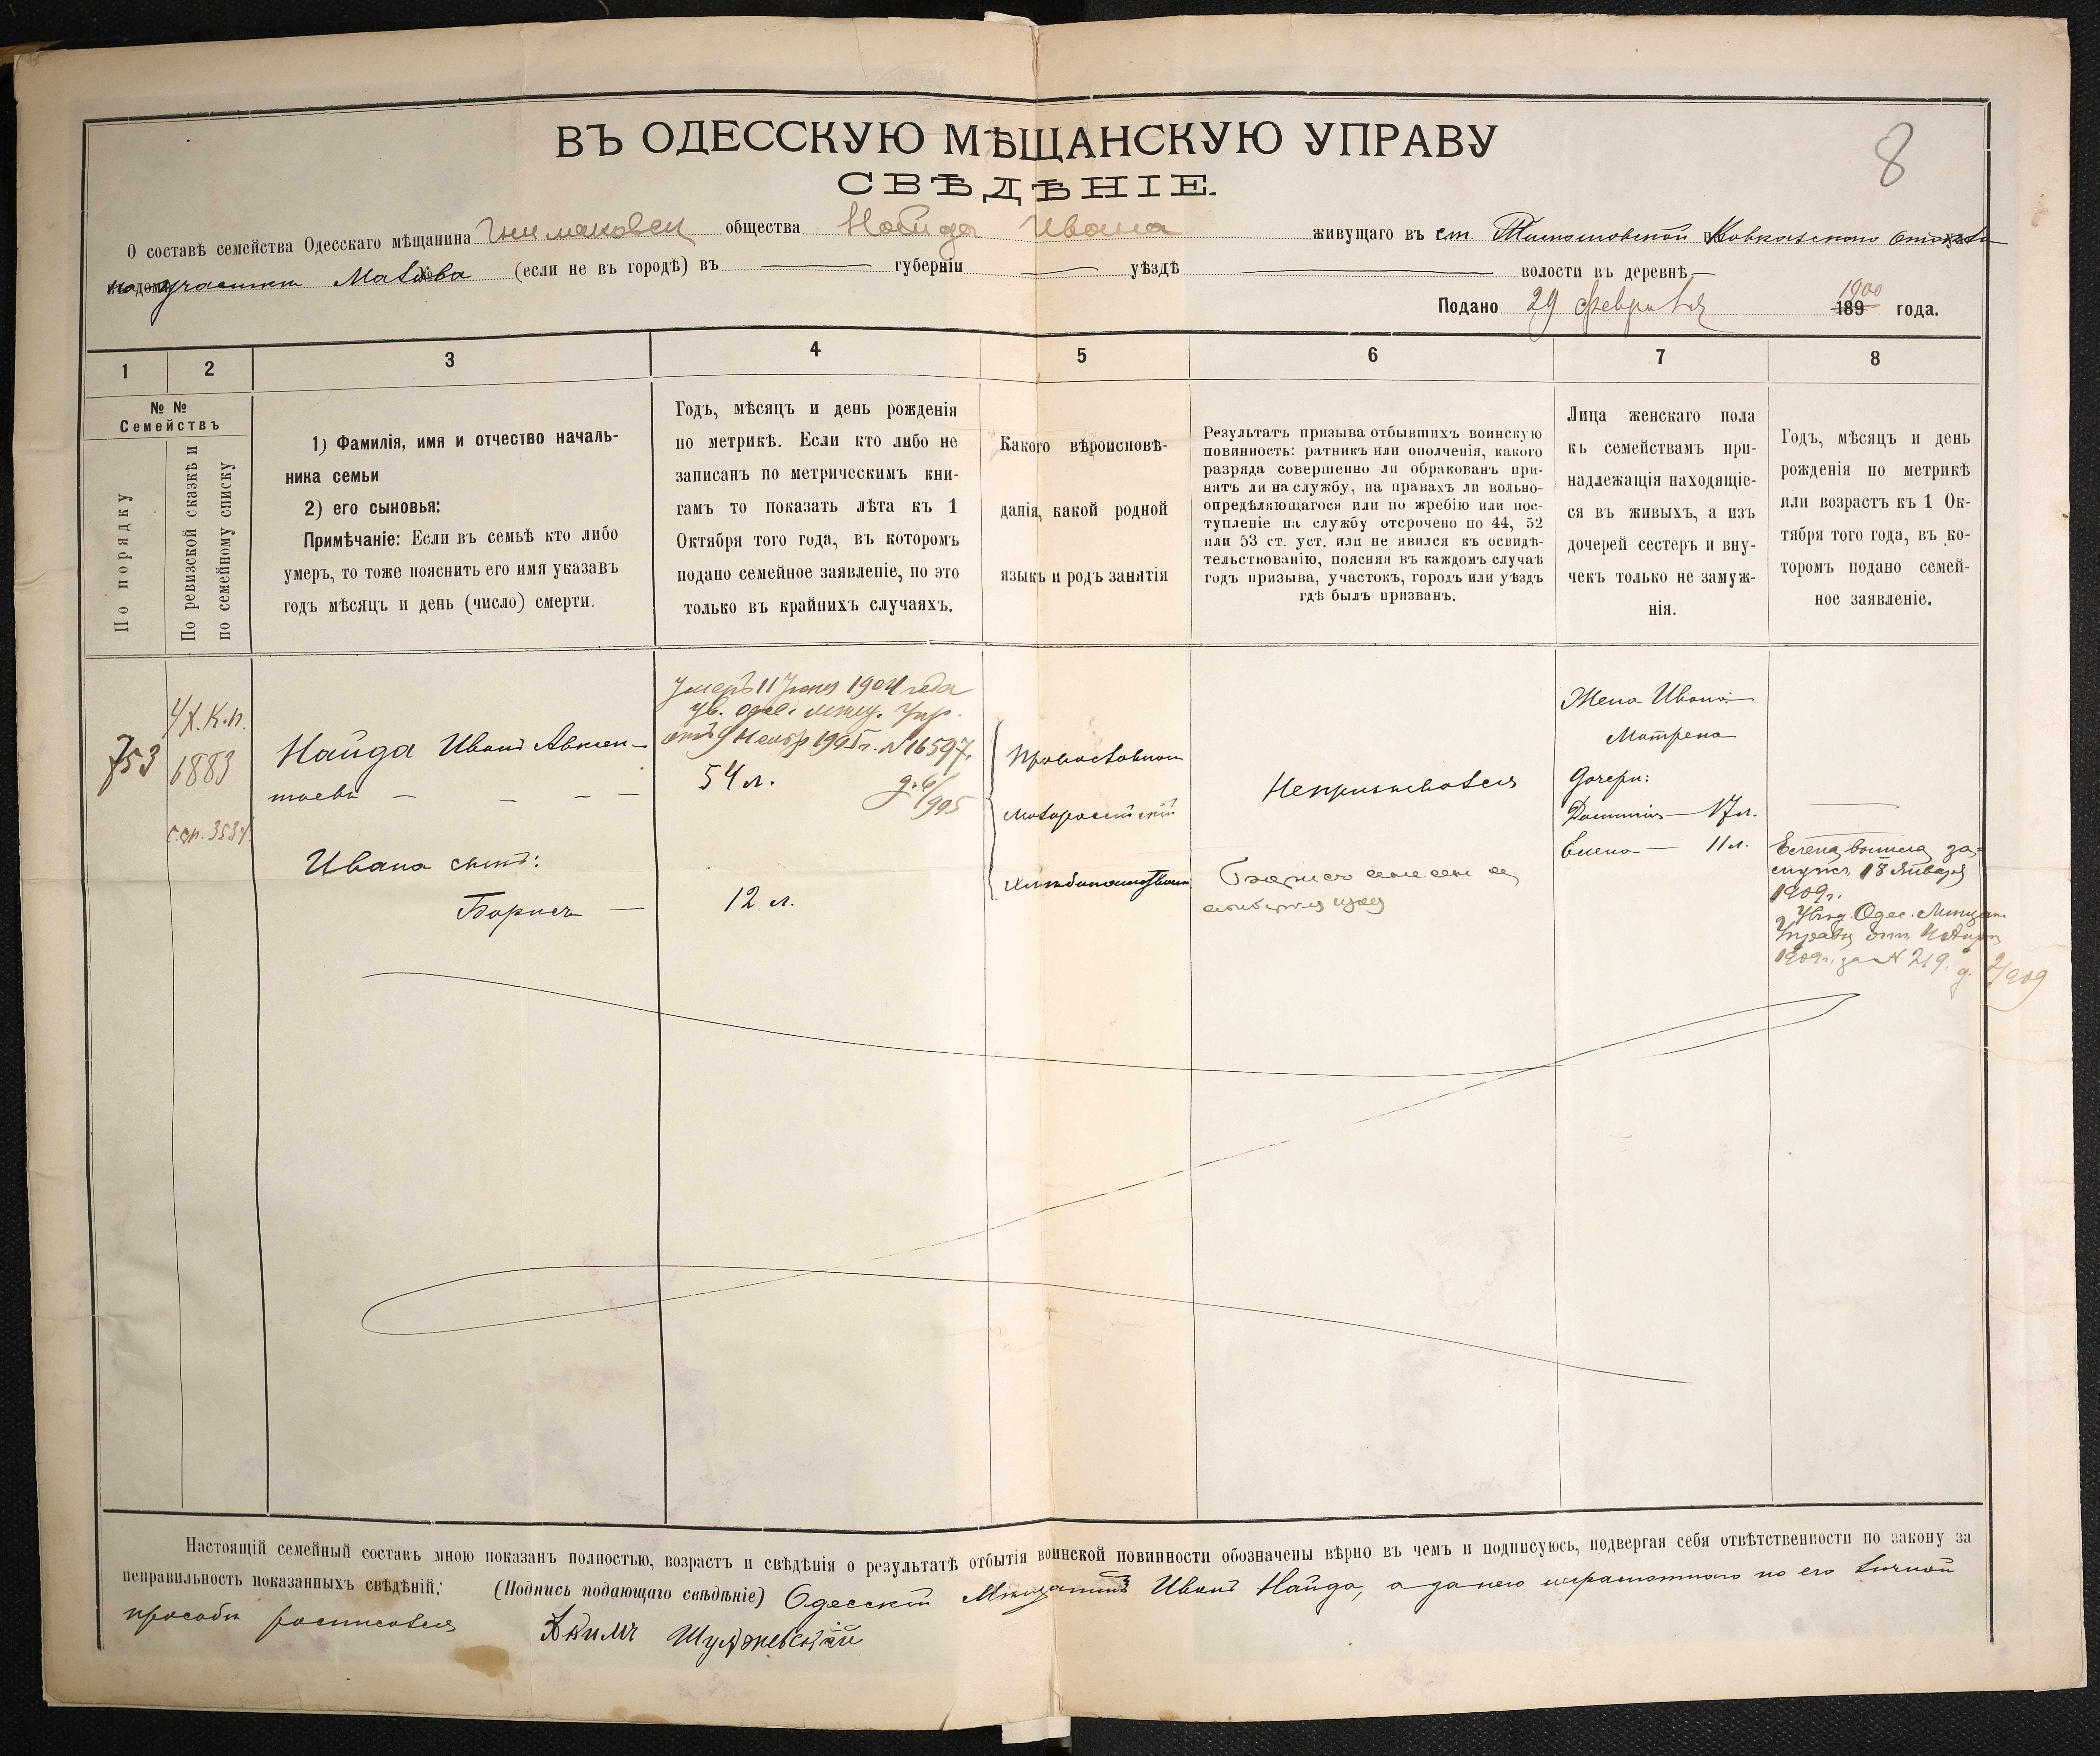 ВЪ ОДЕССКУЮ МѢЩАНСКУЮ УПРАВУ
8
СВѢДѢНІЕ.
О составѣ семейства Одесскаго мѣщанина общества Найда Ивана живущаго въ ст.
участки (если не въ городѣ) въ губерніи уѣздѣ волости въ деревнѣ
Подано 29 Февраля 189 1900 года.
1 2 3 4 5 6 7 8
№ №
Семействъ
По порядку
По ревизской сказкѣ и
по семейному списку
1) Фамилія, имя и отчество началь-
ника семьи
2) его сыновья:
Примѣчаніе: Если въ семьѣ кто либо
умеръ, то тоже пояснить его имя указавъ
годъ мѣсяцъ и день (число) смерти.
Годъ, мѣсяцъ и день рожденія
по метрикѣ. Если кто либо не
записанъ по метрическимъ кни-
гамъ то показать лѣта къ 1
Октября того года, въ которомъ
подано семейное заявленіе, но это
только въ крайнихъ случаяхъ.
Какого вѣроисповѣ-
данія, какой родной
языкъ и родъ занятія
Результатъ призыва отбывшихъ воинскую
повинность: ратникъ или ополченія, какого
разряда совершенно ли обракованъ при-
нятъ ли на службу, на правахъ ли вольно-
опредѣляющагося или по жребію или пос-
тупленіе на службу отсрочено по 44, 52
или 53 ст. уст. или не явился къ освидѣ-
тельствованію, поясняя въ каждомъ случаѣ
годъ призыва, участокъ, городъ или уѣздъ
гдѣ былъ призванъ.
Лица женскаго пола
къ семействамъ при-
надлежащія находящіе-
ся въ живыхъ, а изъ
дочерей сестеръ и вну-
чекъ только не замуж-
нія.
Годъ, мѣсяцъ и день
рожденія по метрикѣ
или возрастъ къ 1 Ок-
тября того года, въ ко-
торомъ подано семей-
ное заявленіе.
753
1883
с.сп. 3534
Найда Иванъ Авксен-
тіевъ
Умеръ 11 Іюня 1904 года
ув. Одес. мѣщ. Упр.
отъ 9 Ноябр 1905 г. № 16597.
54 л.
д. 6/905
Православнаго
малороссійскій
хлѣбопашество
Непризывался
Жена Ивана:
Матрена
Дочери:
17 л.
Елена — 11 л.
Елена вышла за-
мужъ 18 Января
1909 г.
Увѣд. Одес. Мѣщан.
Управы отъ
1909 г. за № 219. д. 2/909
Ивана сынъ:
Борисъ — 12 л.
Настоящій семейный составъ мною показанъ полностью, возрастъ и свѣдѣнія о результатѣ отбытія воинской повинности обозначены вѣрно въ чемъ и подписуюсь, подвергая себя отвѣтственности по закону за
неправильность показанныхъ свѣдѣній. (Подпись подающаго свѣдѣніе) Одесскій Мѣщанинъ Иванъ Найда, а за него неграмотнаго по его личной
просьбѣ росписался Акимъ